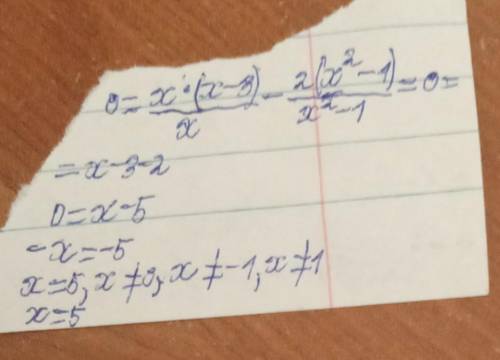 0 = x·(x-3)/x - 2(x²-1)/x²-1 = 0 =
= x-3-2
0 = x-5
-x = -5
x = 5, x ≠ 0, x ≠ -1, x ≠ 1
x = 5